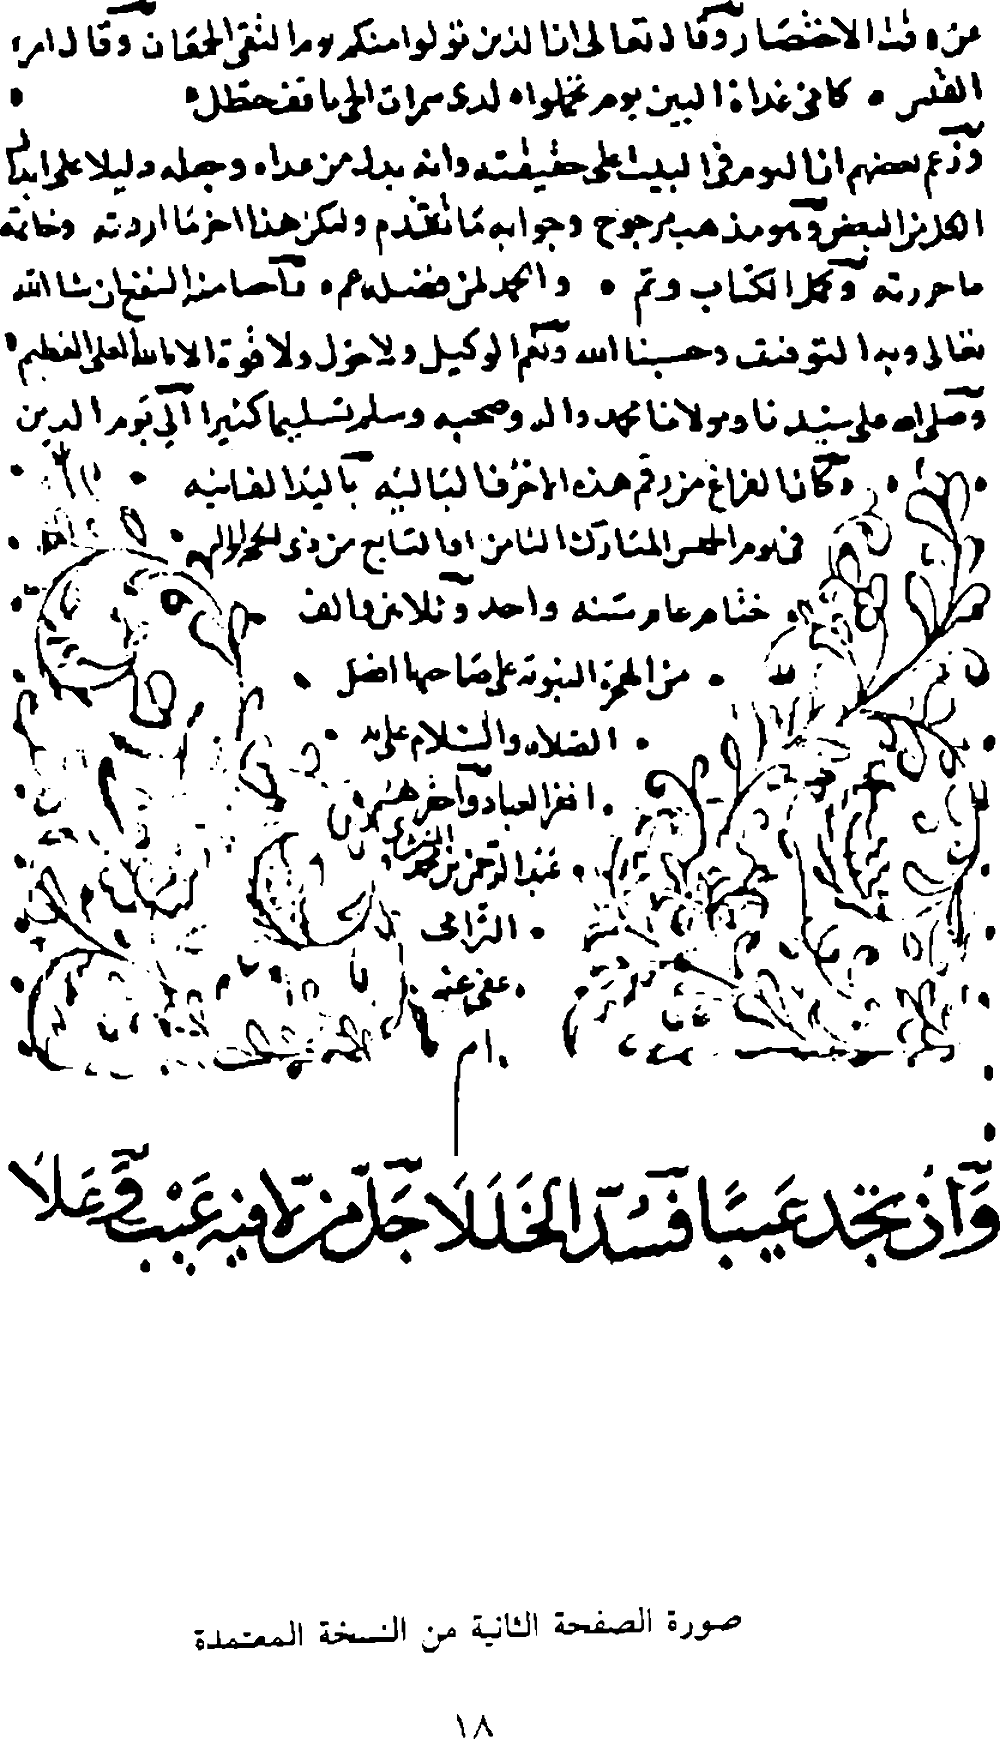 عنه فيه الاختصار وقال تعالى ان الذين تولوا منكم يوم التقى الجمعان وقال امرؤ
القيس • كأني غداة البين يوم تحملوا • لدى سمرات الحي ناقف حنظل •
وزعم بعضهم ان اليوم في البيت على حقيقته وانه بدل من غداه وجعله دليلا على ابدال
الكل من البعض وهو مذهب مرجوح وجوابه ما تقدم وليكن هذا اخر ما اردته وخاتمة
ما حررته وكمل الكتاب وتم • والحمد لمن فضله عم •
تعالى وبه التوفيق وحسبنا الله ونعم الوكيل ولا حول ولا قوة الا بالله العلي العظيم •
وصلى الله على سيدنا ومولانا محمد واله وصحبه وسلم تسليما كثيرا الى يوم الدين
• وكان الفراغ من رقم هذه الاحرف البالية باليد الفانيه
في يوم الخميس المبارك الثامن او السابع من ذي الحجة
• ختام عام سنه واحد وثلاثين والف
• من الهجرة النبوية على صاحبها افضل •
• الصلاه والسلام على يد •
• افقر العباد واحقرهم
• عبد الرحمن بن محمد
•
• عفي عنه •
• ام
وان تجد عيبا فسد الخللا جل من لا فيه عيب وعلا
صورة الصفحة الثانية من النسخة المعتمدة
١٨